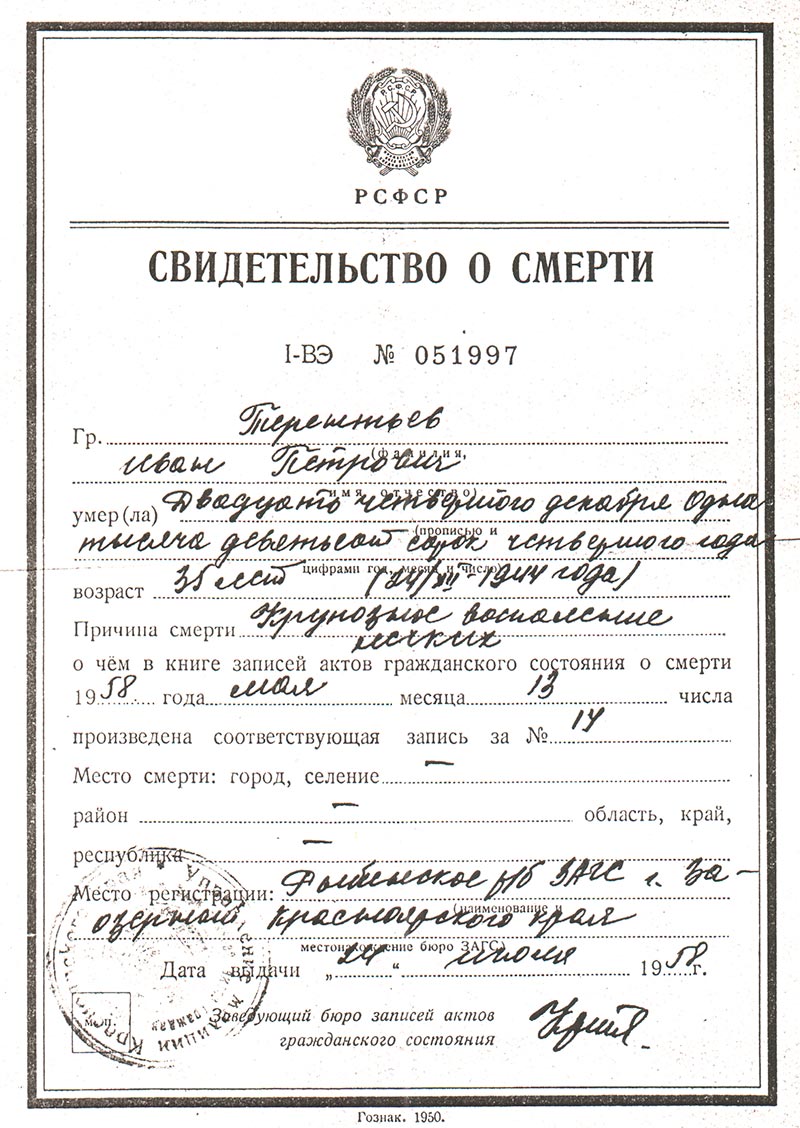 РСФСР
РСФСР
СВИДЕТЕЛЬСТВО О СМЕРТИ
I-ВЭ № 051997
Гр. Терентьев
(фамилия,
Иван Петрович
имя, отчество)
умер(ла) Двадцать четвертого декабря Одна
(прописью и
тысяча девятьсот сорок четвертого года
цифрами год, месяц и число)
возраст 35 лет (24/XII-1944 года)
Причина смерти Крупозное воспаление
легких
о чём в книге записей актов гражданского состояния о смерти
1958 года мая месяца 13 числа
произведена соответствующая запись за № 14
Место смерти: город, селение —
район — область, край,
республика —
Место регистрации: Рыбинское р/б ЗАГС г. За-
(наименование и
озерный Красноярского края
местонахождение бюро ЗАГС)
Дата выдачи „24“ июля 1958 г.
М. П.
Заведующий бюро записей актов
гражданского состояния
Гознак. 1950.